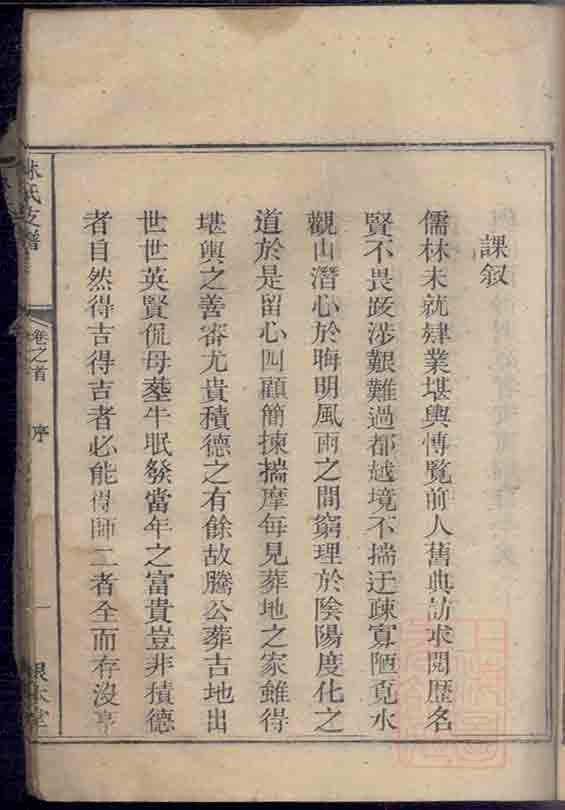 課叙
儒林未就肄業堪輿博覧前人舊典訪求閱歴名
賢不畏跋涉艱難過都越境不揣迂疎寡陋覓水
觀山潛心於晦明風雨之間窮理於陰陽度化之
道於是留心四顧簡揀揣摩每見葬地之家雖得
堪輿之善審尤貴積德之有餘故騰公葬吉地出
世世英賢侃母塟牛眠發當年之富貴豈非積德
者自然得吉得吉者必能得師二者全而存没亨
林氏支譜
卷之首
序
一
根本堂